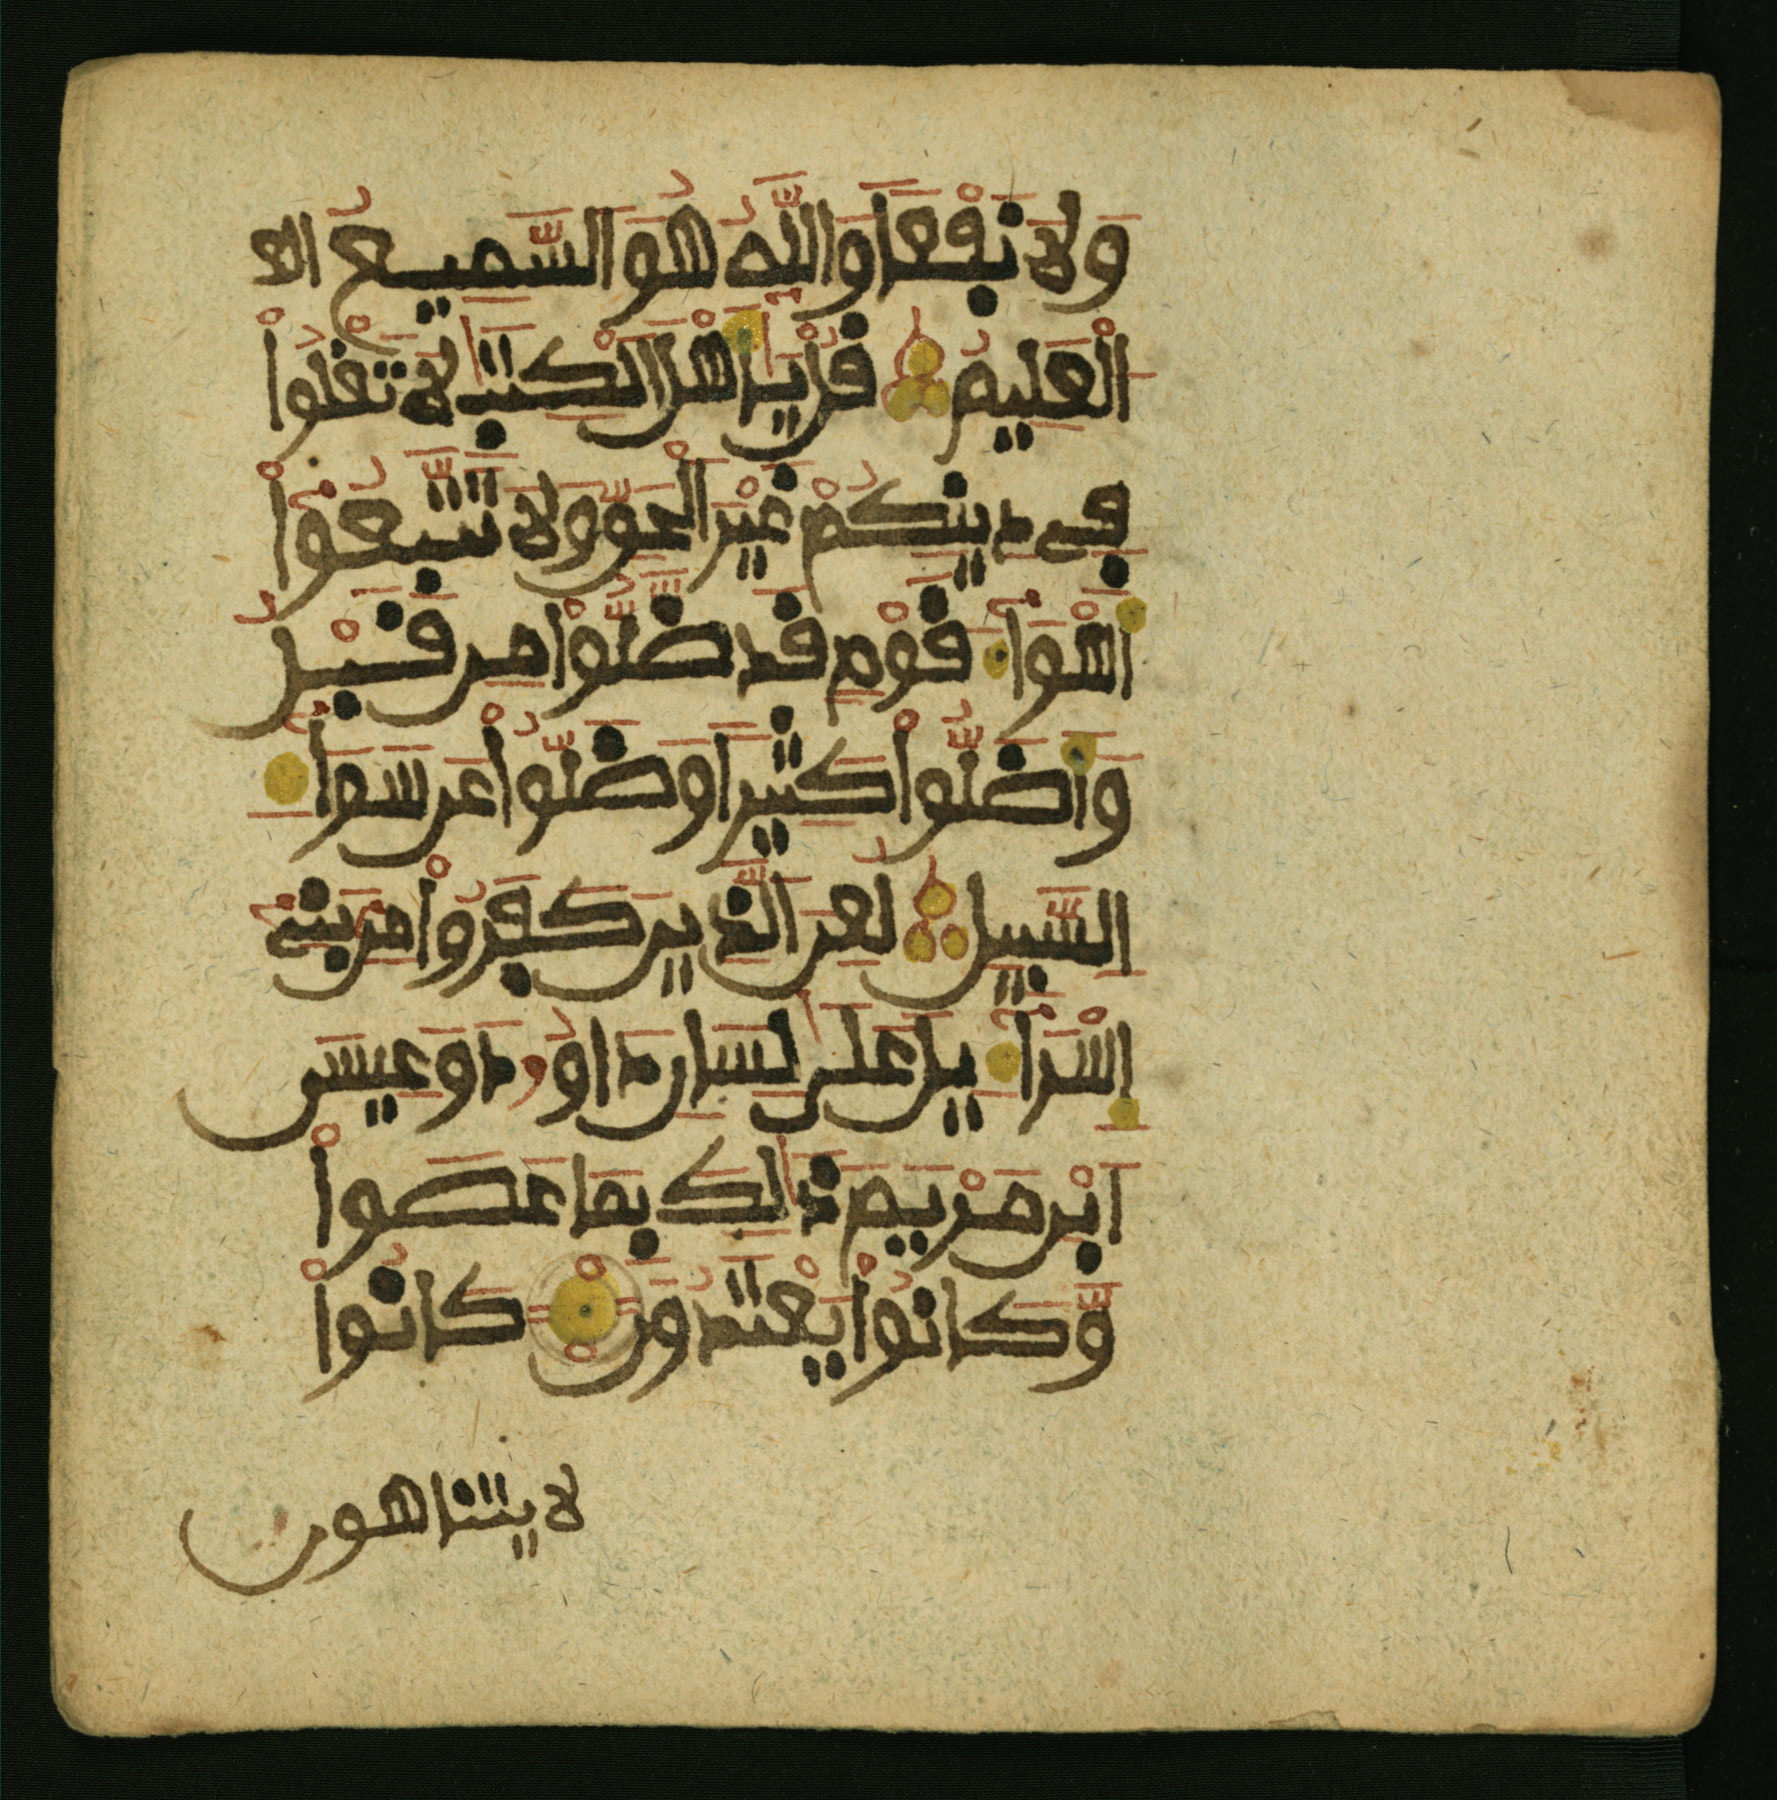 وَلَا نَفْعًا وَاللَّهُ هُوَ السَّمِيعُ الع
الْعَلِيمُ قُلْ يَٰأَهْلَ الْكِتَٰبِ لَا تَغْلُواْ
فِي دِينِكُمْ غَيْرَ الْحَقِّ وَلَا تَتَّبِعُواْ
أَهْوَاءَ قَوْمٍ قَد ضَّلُّواْ مِن قَبْلُ
وَأَضَلُّواْ كَثِيرًا وَضَلُّواْ عَن سَوَاءِ
السَّبِيلِ لُعِنَ الَّذِينَ كَفَرُواْ مِن بَنِي
إِسْرَاءِيلَ عَلَىٰ لِسَانِ دَاوُودَ وَعِيسَى
ابْنِ مَرْيَمَ ذَٰلِكَ بِمَا عَصَواْ
وَّكَانُواْ يَعْتَدُونَ كَانُواْ
لا يتناهون